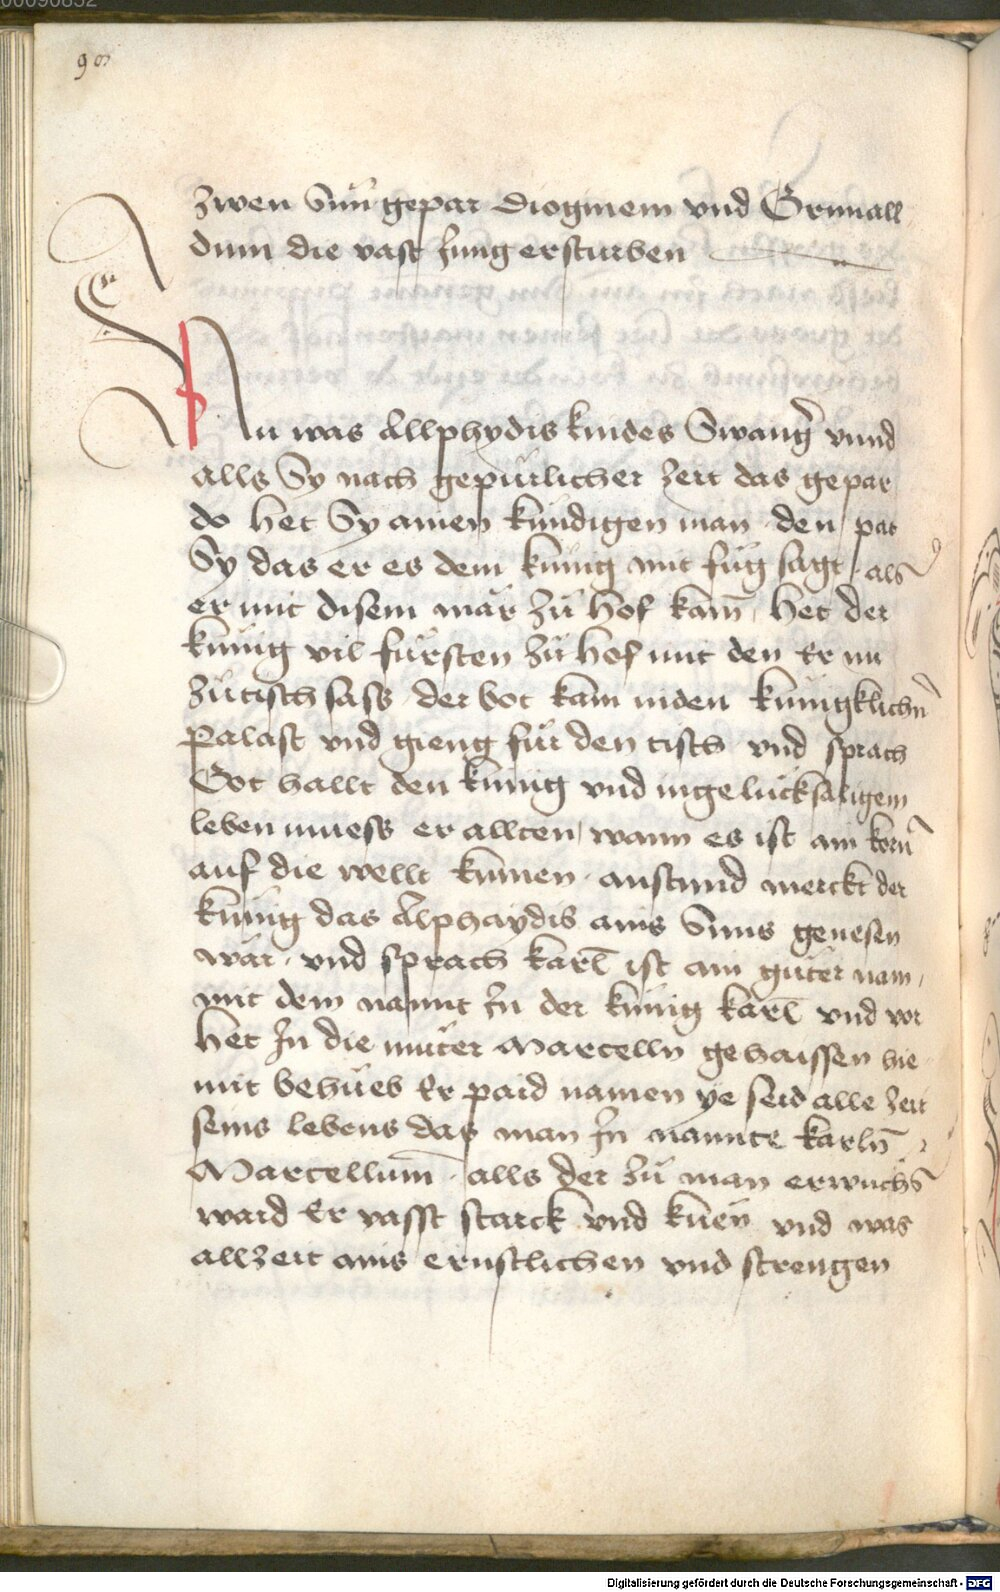 00090852
98
zwen Sün gepar diogmem vnd Grimall
dum die vast Jung ersturben
Nu was Allphydis kindes Swang̃ vnnd
alls Sy nach gepürlicher zeit das gepar
do het Sy ainen kündigen man den pat
Sy das er es dem künig mit füg sagt als
er mit disem mär zü hof kam̄ het der
künig vil fürsten zü hof mit den Er nu
zütisch sass der bot kam inden künigklichn̄
Palast vnd gieng für den tisch vnd sprach
Got hallt den künig vnd ingelücksäligem
leben muess er allten wann es ist ain
auf die wellt kumen anstund merckt der
künig das Alphaydis ains Suns genesen
wär vnd sprach karl̄ ist ain güter nam
mit dem nannt In der künig karl̄ vnd vor
het In die müter Marcelln gehaissen hie
mit behüeb Er paid namen ye seid alle zeit
seins lebens das man In nannte karln̄
Marcellum̄ alls der zü man erwuchs
ward Er vasst starck vnd küen vnd was
allzeit ains ernstlichen vnd strengen
Digitalisierung gefördert durch die Deutsche Forschungsgemeinschaft - DFG